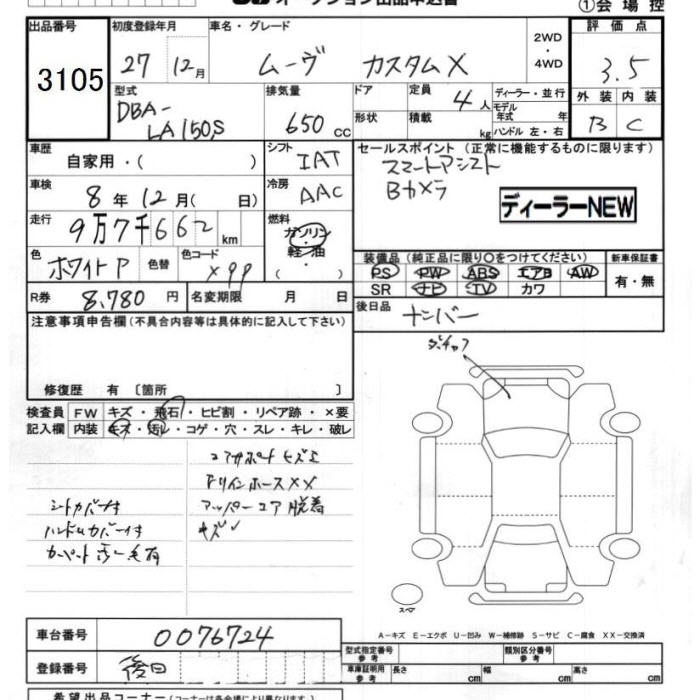 オークション出品申込書
①会場控
出品番号 初度登録年月 車名・グレード 2WD ・ 4WD 評価点
3105 27 12月 ムーヴ カスタムX 3.5
型式 排気量 ドア 定員 4人 ディーラー・並行 外装 内装
DBA-LA150S 650cc 形状 積載 kg モデル年式 年 ハンドル 左・右 B C
車歴 自家用・( ) シフト IAT セールスポイント (正常に機能するものに限ります)
スマートアシスト
車検 8年12月( 日) 冷房 AAC Bカメラ
ディーラーNEW
走行 9万7千662km 燃料 ガソリン・軽油 ( )
色 ホワイトP 色替 色コード 装備品 (純正品に限り○をつけてください) 新車保証書
PS PW ABS エアB AW 有・無
SR ナビ TV カワ
R券 8,780円 名変期限 月 日 後日品 ナンバー
注意事項申告欄 (不具合内容等は具体的に記入して下さい)
修復歴 有 〔箇所 〕
検査員 FW キズ・飛石・ヒビ割・リペア跡・×要
記入欄 内装 キズ・汚レ・コゲ・穴・スレ・キレ・破レ
シートカバー付
ハンドルカバー付
スペア
A-キズ E-エクボ U-凹み W-補修跡 S-サビ C-腐食 XX-交換済
車台番号 0076724
型式指定番号 参考 類別区分番号 参考
登録番号 後日 車庫証明用 参考 長さ cm 幅 cm 高さ cm
希望出品コーナー (コーナーは各会場により異なります。)